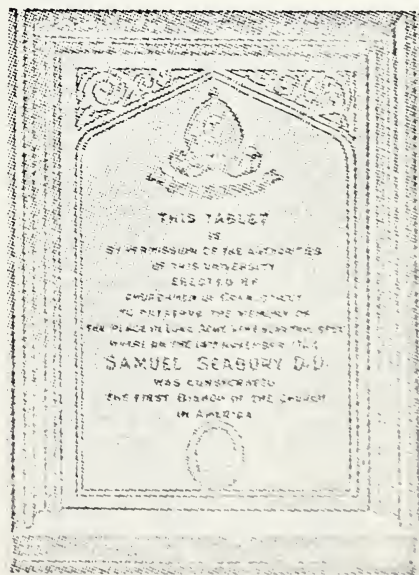 THIS TABLET
IS
BY PERMISSION OF THE AUTHORITIES
OF THIS UNIVERSITY
ERECTED BY
CHURCHMEN OF CONNECTICUT
TO PRESERVE THE MEMORY OF
THE PLACE IN LONG ACRE VERY NEAR THIS SPOT
WHERE ON THE 14TH NOVEMBER 1784
SAMUEL SEABURY D.D.
WAS CONSECRATED
THE FIRST BISHOP OF THE CHURCH
IN AMERICA